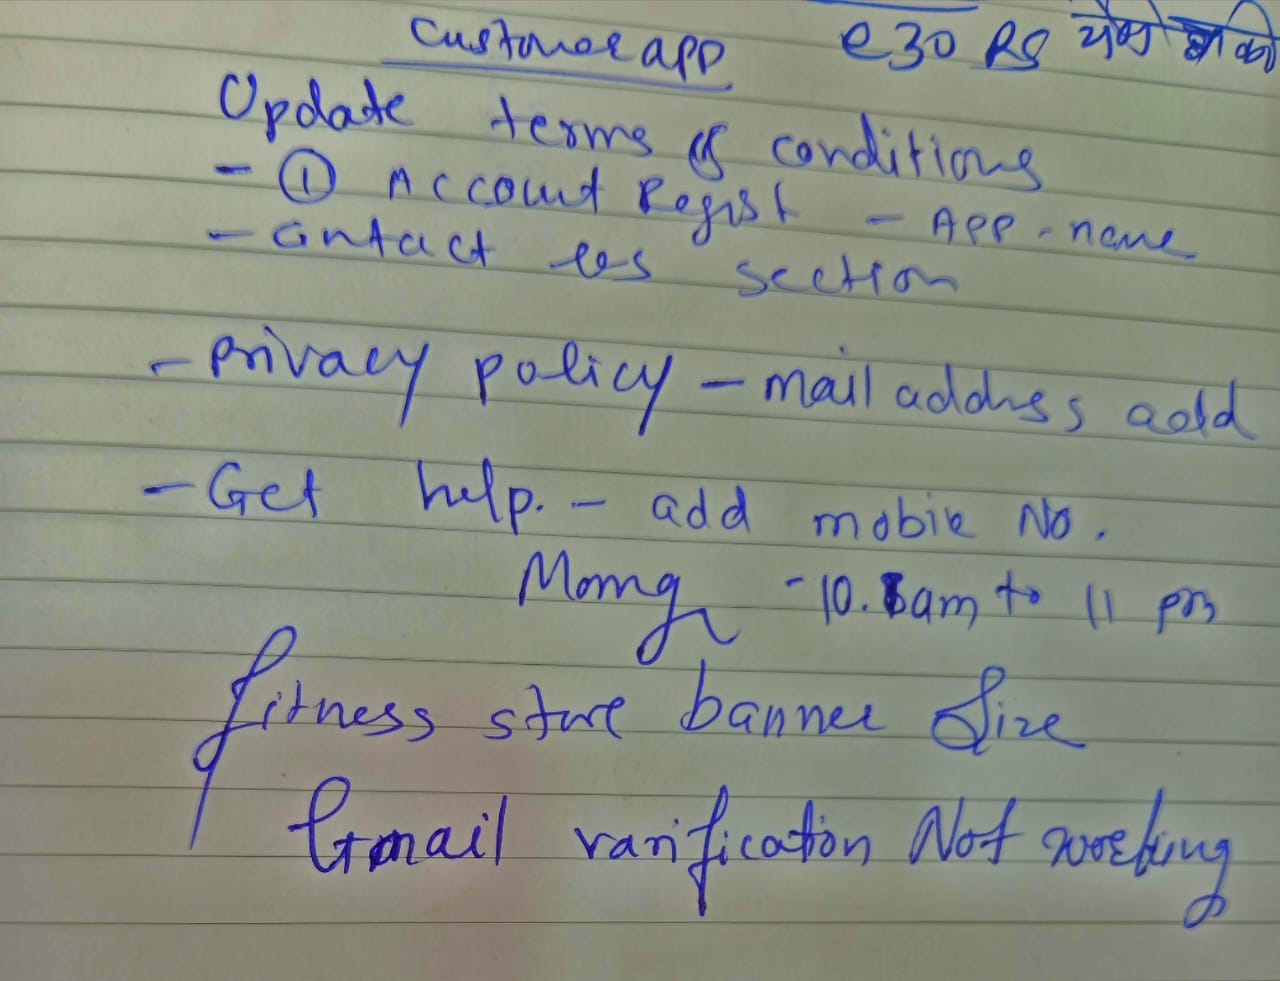 Customer app
e30 RS
Update terms & conditions
- ① Account Regist - App. name
- Contact us section
- privacy policy - mail address add
- Get help. - add mobile No.
Morng - 10. am to 11 pm
fitness store banner Size
Gmail varification Not working